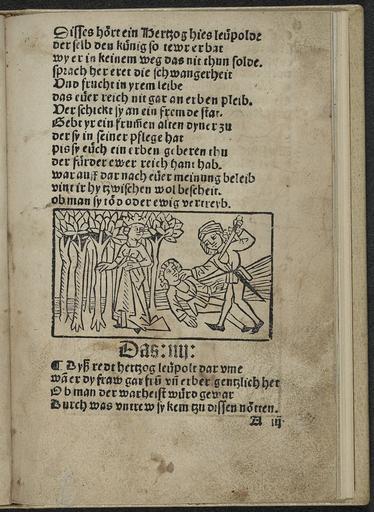 Disses hört ein Hertzog hies leüpolde
der selb den künig so tewr erbat
wy er in keinem weg das nit thun solde.
sprach her eret die schwangerheit
Vnd frucht in yrem leibe
das eüer reich nit gar an erben pleib.
Verschickt sy an ein fremde stat.
Gebt yr ein frum̄en alten dyner zu
der sy in seiner pflege hat
pis sy eüch ein erben geberen thu
der fürder ewer reich hant hab.
war auff dar nach eüer meinung beleib
vint ir hy tzwischen wol bescheit.
ob man sy töd oder ewig vertreyb.
Das :iiij:
¶ Dyß redt hertzog leüpolt dar vme
wā er dy fraw gar frū vn̄ erber gentzlich het
Ob man der warheist würd gewar
Durch was vntrew sy kem tzu dissen nötten.
A iij